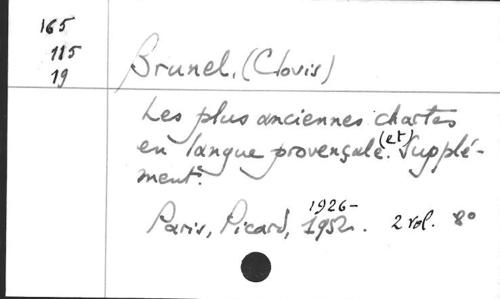 165
115
19
Brunel, (Clovis)
Les plus anciennes chartes
en langue provençale. (et) Supplé-
ment.
Paris, Picard, 1926-1952. 2 vol. 8°